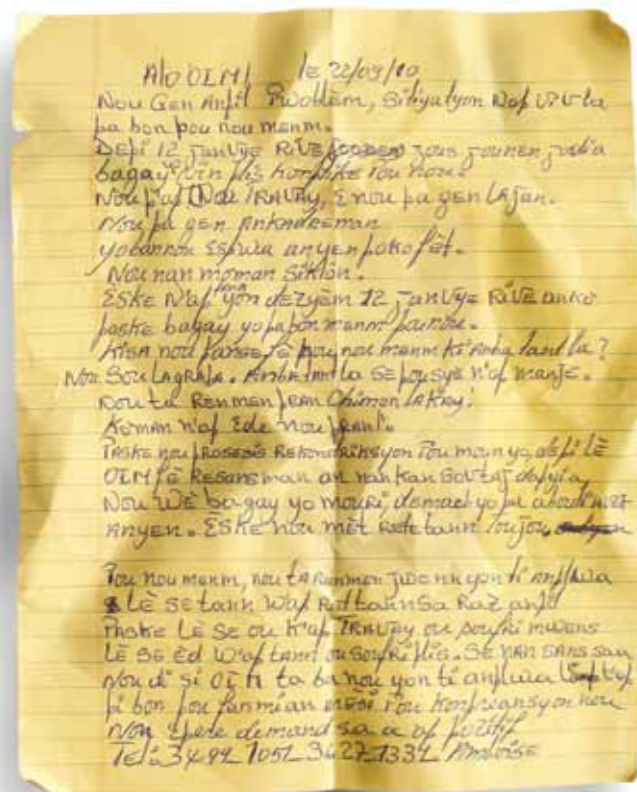 Alo OIM! le 22/09/10
Nou Gen Anpil Pwoblèm, Sitiyatyon N'ap viv la
pa bon pou nou menm.
DEpi 12 janvye Rive jous jounen jodia
bagay yo vin plis konplike Pou nou.
Nou p'ap travay, E nou pa gen lajan.
Nou pa gen Ankadreman
yo bannou Espwa anyen poko fèt.
Nou nan moman Siklòn.
ESKE N'ap yon dezyèm 12 janvye Rive anko
paske bagay yo pa bon menm pou nou.
Kisa nou panse fè pou nou menm ki Anba tant la?
Nou Sou LAGRAJA. Anba tant la SE pousyè n'ap manje.
Nou ta Renmen pran Chimen LAKAY!
Koman n'ap Ede nou pran l.
PASKE nou prosesis Rekondriksyon Pou moun yo depi lè
OIM fè Resansman an nan kan
Nou Wè bagay yo mouri, demach yo pa abouti
Anyen. ESKE nou mèt Rete tann toujou
Pou nou menm, nou ta Renmen jwenn yon ti Anplwa
LÈ SE tann W'ap Ret tann Sa Raz anpil
PASKE LÈ SE ou K'ap TRAVAY ou soufri mwens
LÈ SE Èd W'ap tann ou soufri plis. SE nan sans saa
Nou di si OIM ta ba nou yon ti anplwa
pi bon pou fanmi an mèsi Pou Konpreansyon nou
Nou Espere demand sa a ap pozitif
TEl: 3499 7051_3627_7332 Amboise